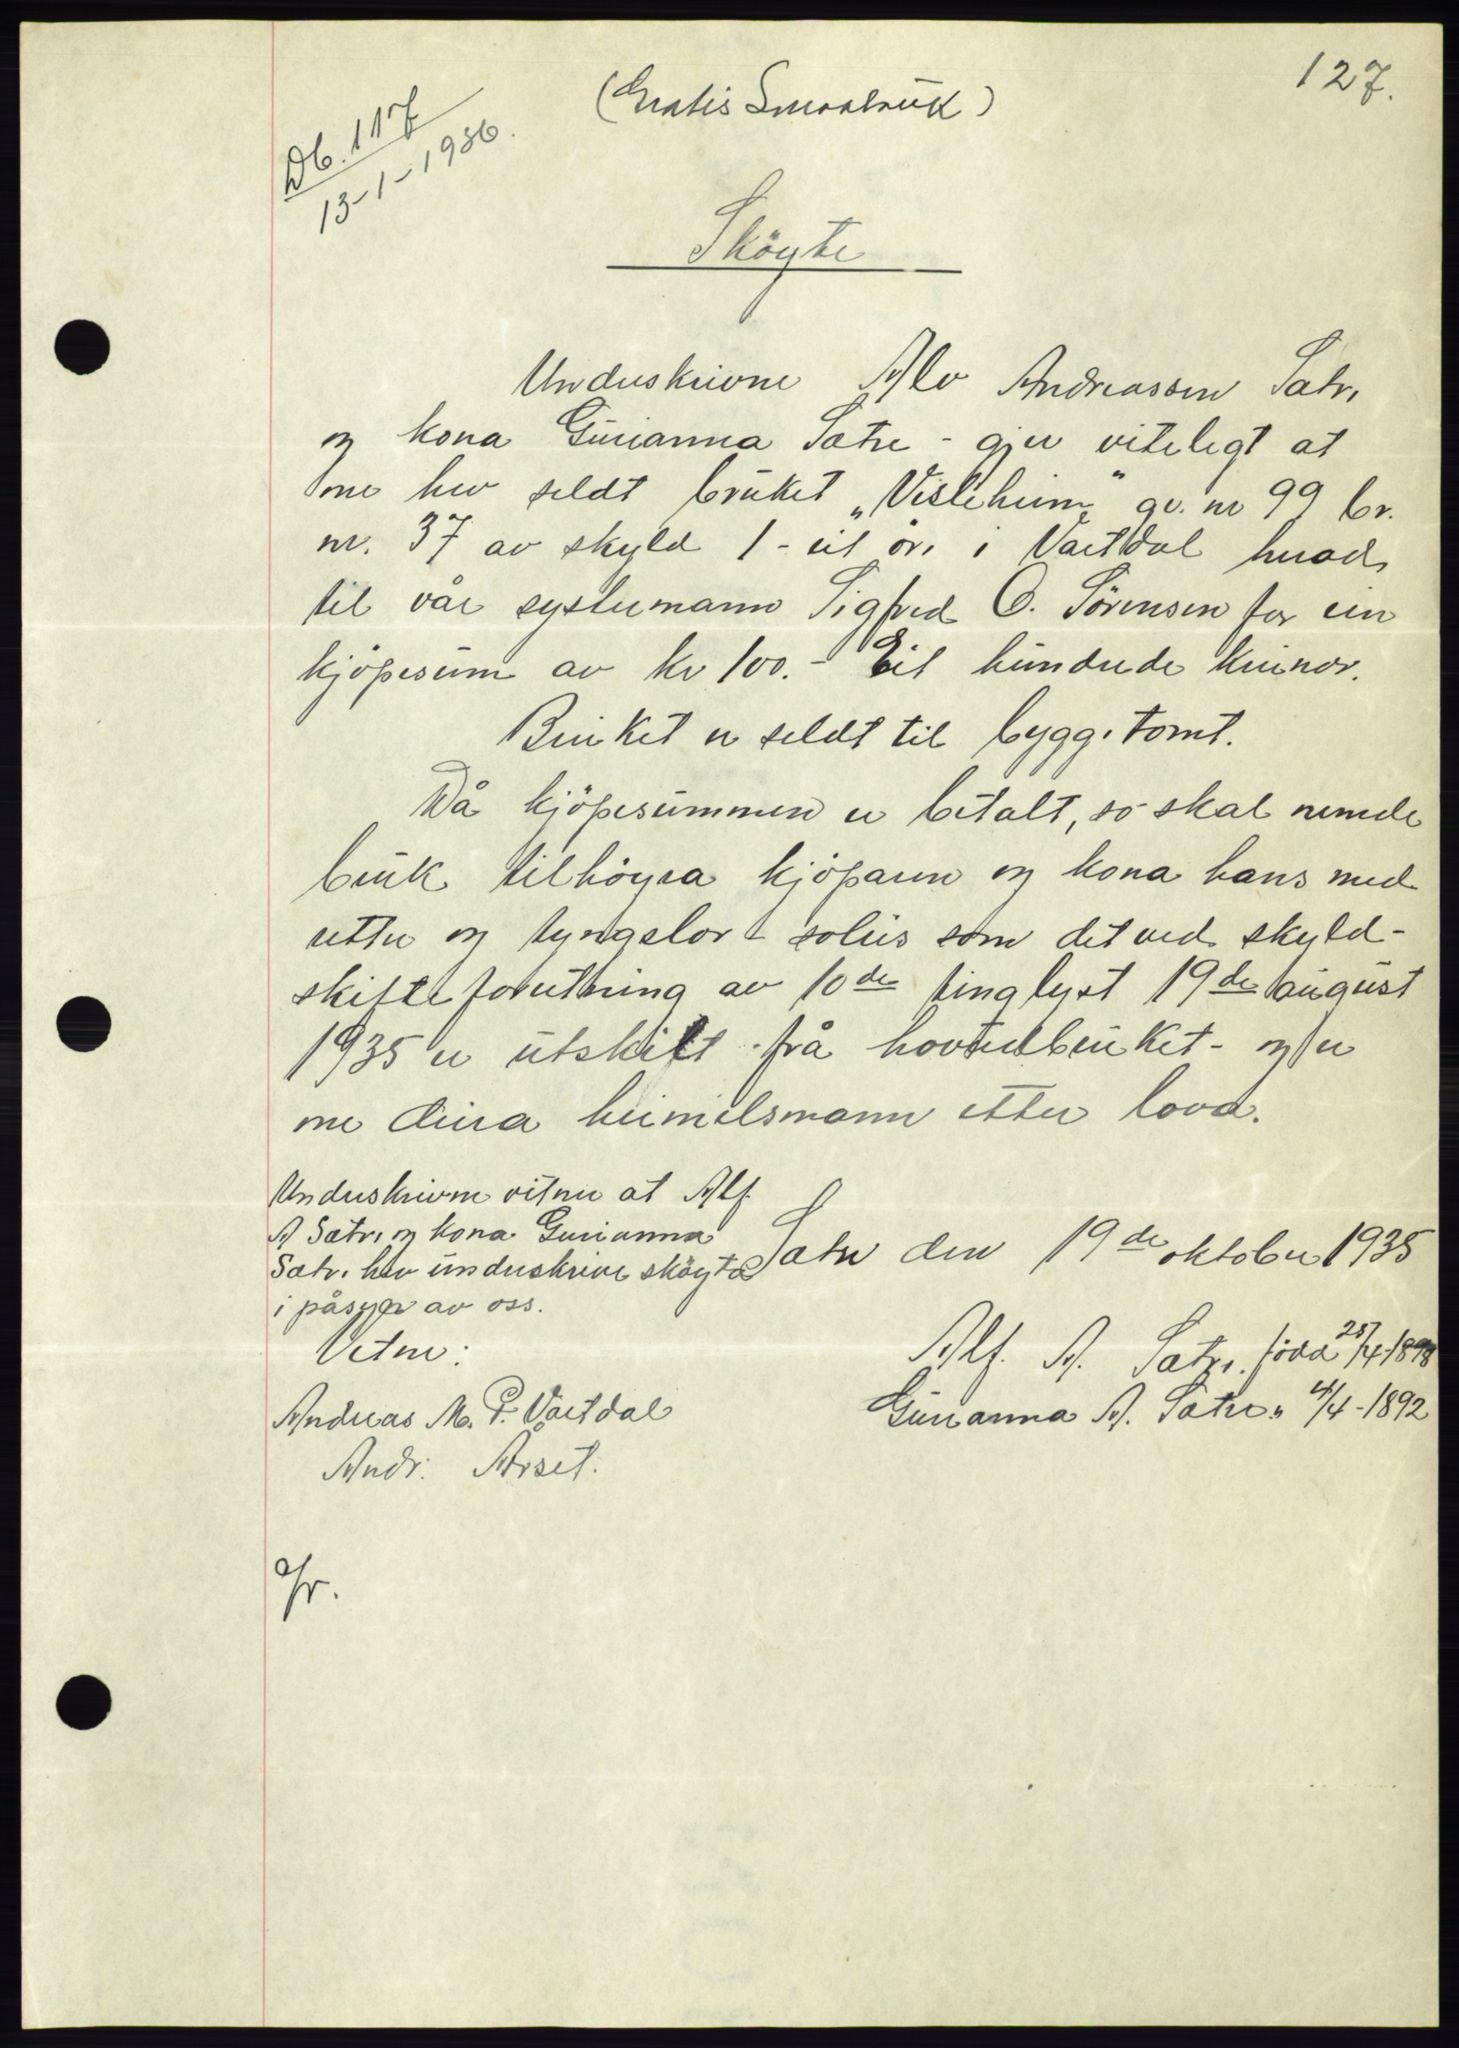 127.
(Gratis Smaabruk)
Db. 117
13-1-1936.
Sköyte
Underskrivne Alv Andreassen Sætre
og kona Gurianna Sætre - gjer viteligt at
me hev seldt bruket „Vesleheim" gr. nr 99 br.
nr. 37 av skyld 1 - eit öre i Vartdal herad,
til vår systermann Sigfred O. Sörensen for ein
kjöpesum av kr 100. - Eit hundrede kronor.
Bruket er seldt til byggetomt.
Då kjöpesummen er betalt, so skal nemde
bruk tilhöyra kjöparen og kona hans med
retter og tyngslor - soleis som det ved skyld-
skifteforretning av 10de tinglyst 19de august
1935 er utskilt frå hovudbruket - og er
me deira heimelsmann etter lova.
Sætre den 19de oktober 1935
Alf. A. Sætre. född 25/4-1898
Gurianna A. Sætre " 4/4-1892
Underskrivne vitner at Alf.
A Sætre og kona Gurianna
Sætre hev underskrive sköyta
i påsyn av oss.
Vitne:
Andreas M. P. Vartdal
Andr. Årset.